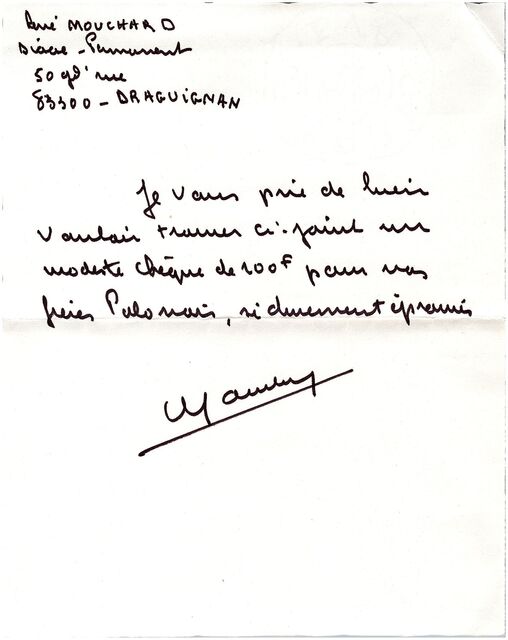 René MOUCHARD
Diacre - Permanent
50 gd' rue
83300 - DRAGUIGNAN
Je vous prie de bien
vouloir trouver ci-joint un
modeste chèque de 100F pour nos
frères Polonais, si durement éprouvés